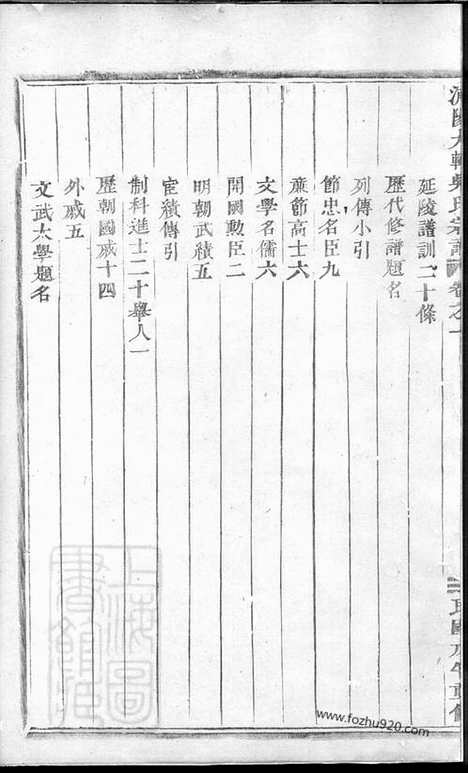 大幹吳氏宗譜 卷之一
延陵譜訓二十條
歷代修譜題名
列傳小引
節忠名臣九
廉節高士六
文學名儒六
開國勳臣二
明朝武績五
宦績傳引
制科進士二十舉人一
歷朝國戚十四
外戚五
文武大學題名
民國九年重修
上海圖書館藏
www.fozhu920.com